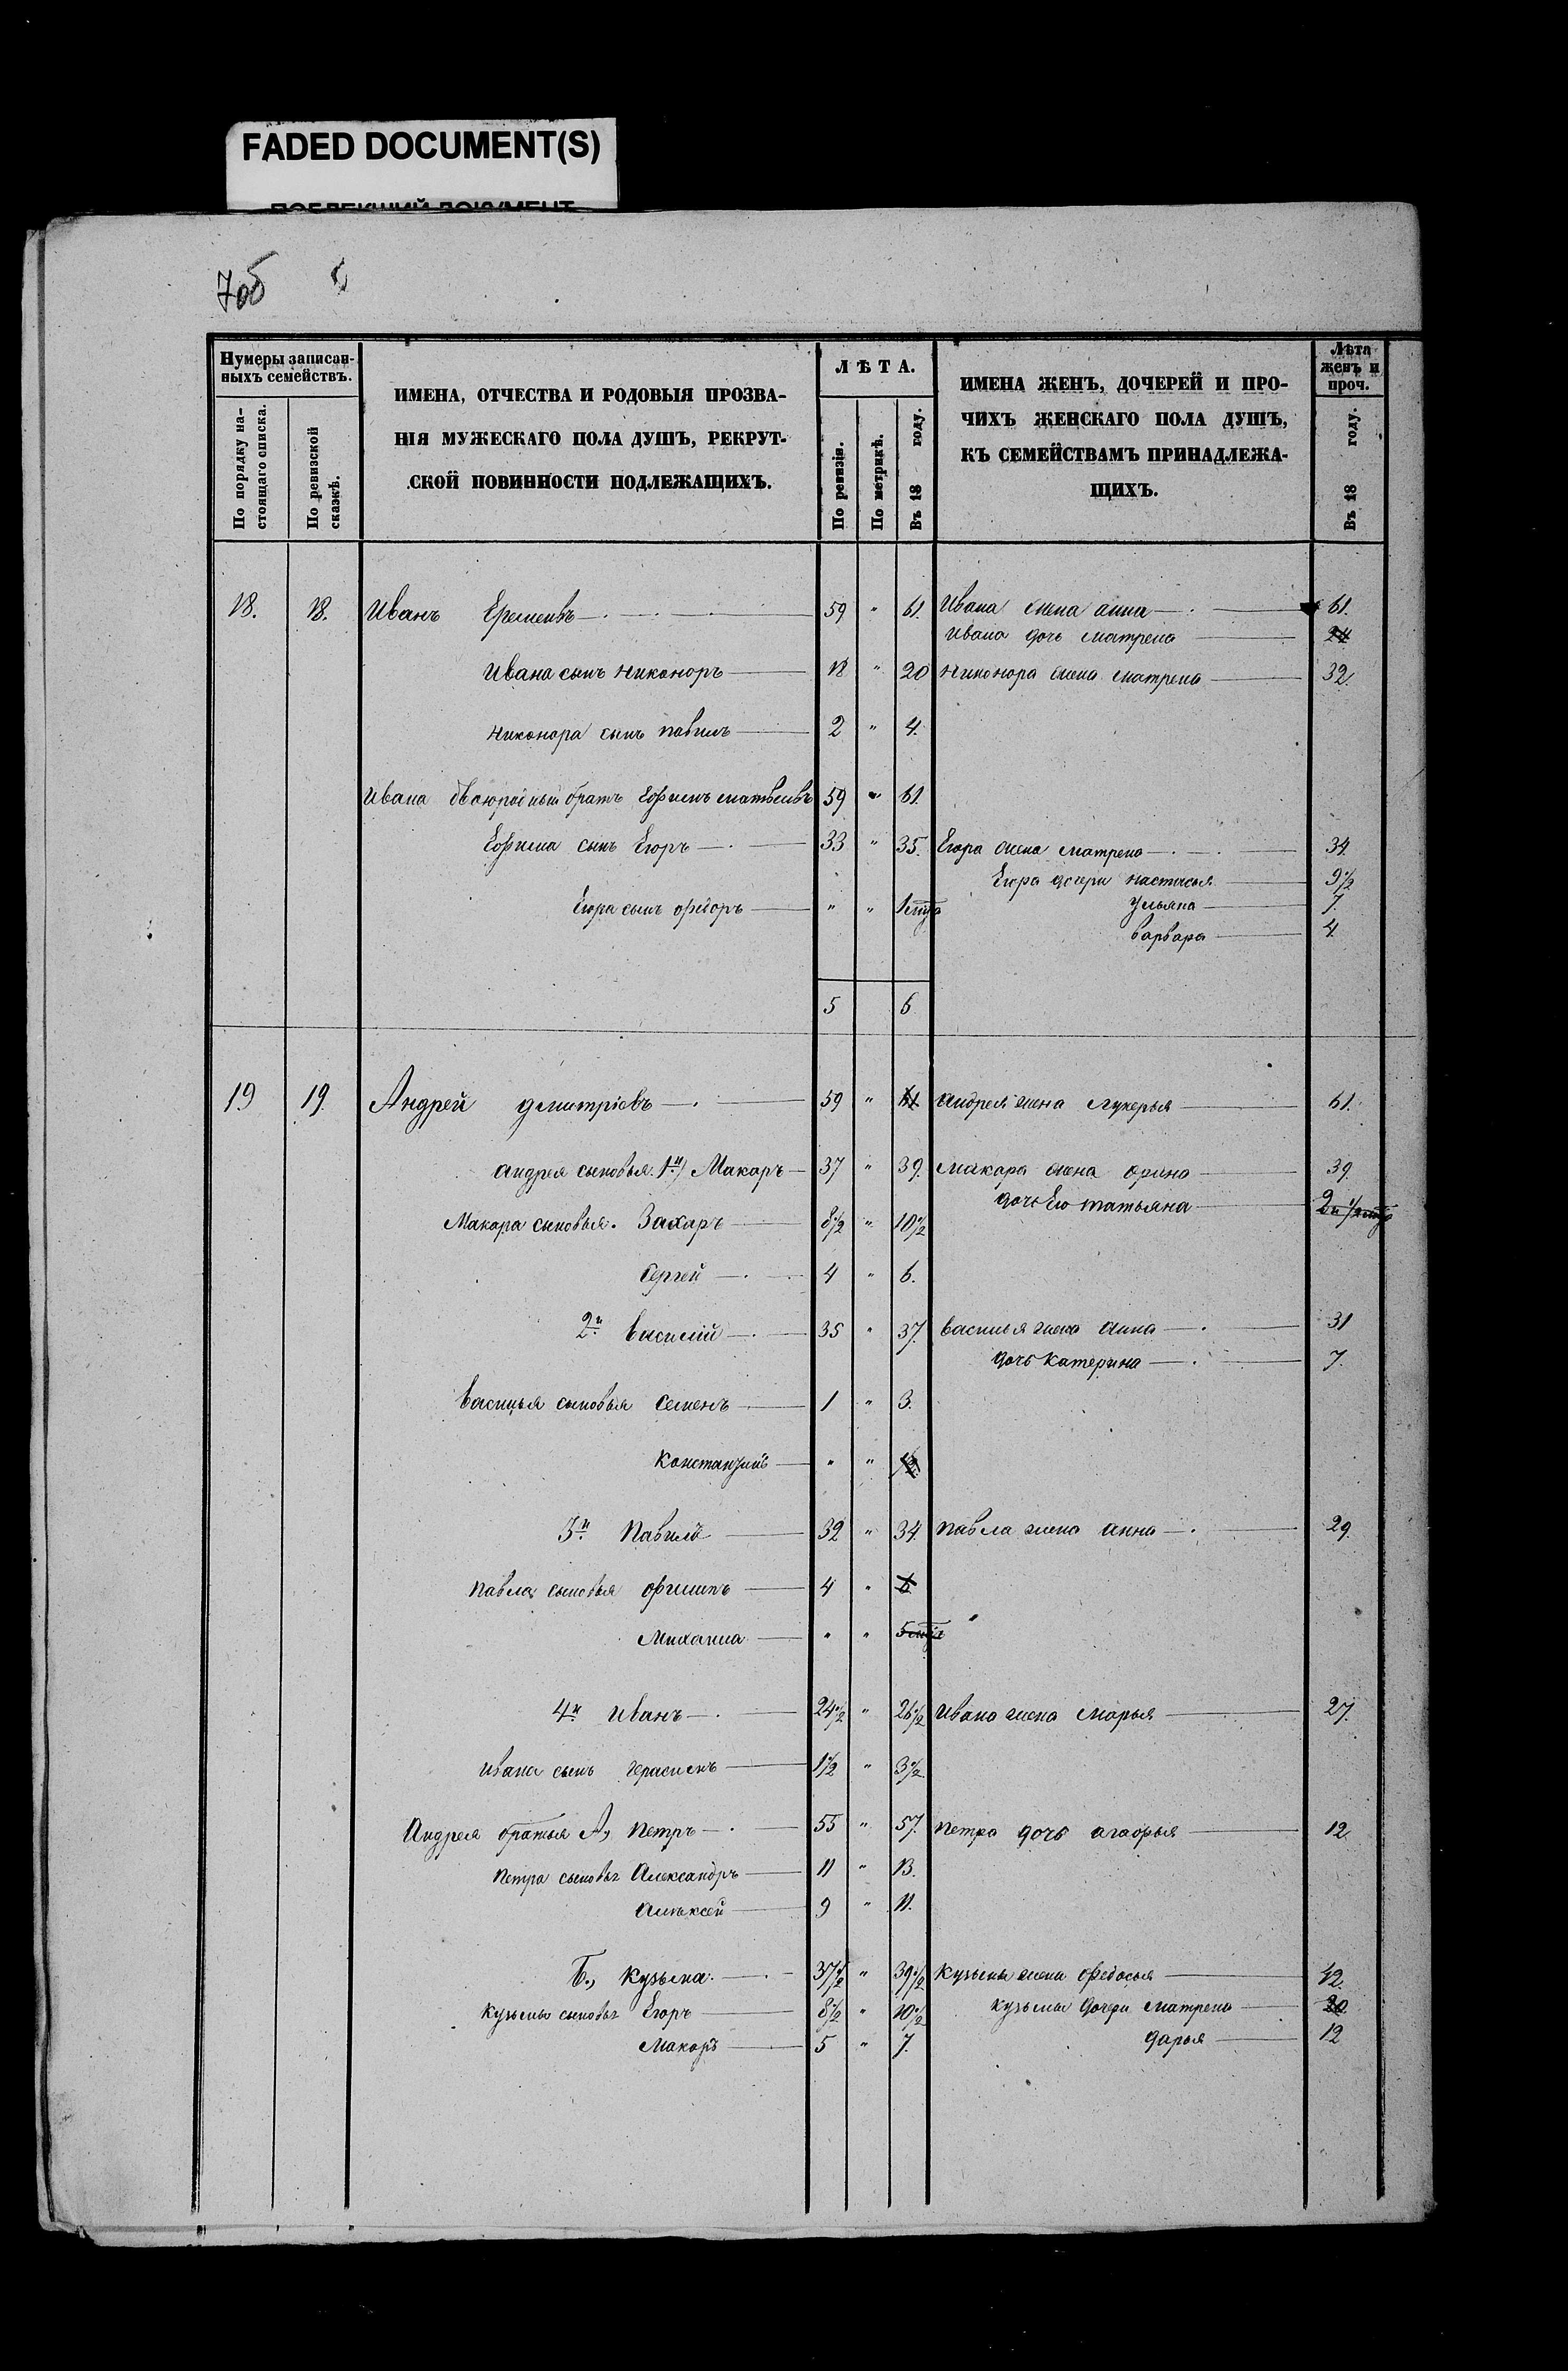 FADED DOCUMENT(S)
7об
Нумеры записан-
ныхъ семействъ.
По порядку на-
стоящаго списка.
По ревизской
сказкѣ.
ИМЕНА, ОТЧЕСТВА И РОДОВЫЯ ПРОЗВА-
НІЯ МУЖЕСКАГО ПОЛА ДУШЪ, РЕКРУТ-
СКОЙ ПОВИННОСТИ ПОДЛЕЖАЩИХЪ.
ЛѢТА.
По ревизіи.
По метрикѣ.
Въ 18 году.
ИМЕНА ЖЕНЪ, ДОЧЕРЕЙ И ПРО-
ЧИХЪ ЖЕНСКАГО ПОЛА ДУШЪ,
КЪ СЕМЕЙСТВАМЪ ПРИНАДЛЕЖА-
ЩИХЪ.
Лѣта
женъ и
проч.
Въ 18 году.
18. 18. Иванъ Еремеевъ 59 " 61. Ивана жена анна 61.
Ивана дочь матрена 24
Ивана сынъ никоноръ 18 " 20 никонора жена матрена 32.
никонора сынъ павилъ 2 " 4.
Ивана двоюродный братъ Ефимъ матвеевъ 59 " 61.
Ефима сынъ Егоръ 33 " 35. Егора жена матрена 34.
Егора дочери настасья 9 1/2
Егора сынъ федоръ " " Ульяна 7.
варвара 4.
5 6
19 19. Андрей дмитріевъ 59 " 61 андрея жена лукерья 61.
андрея сыновья. 1й) Макаръ 37 " 39. макара жена орина 39.
дочь Его татьяна
Макара сыновья. Захаръ 8 1/2 " 10 1/2
Сергей 4 " 6.
2й Василій 35 " 37. василья жена анна 31
дочь катерина 7.
Василья сыновья семенъ 1 " 3.
" "
3й Павилъ 32 " 34. павла жена анна 29.
павла сыновья филипъ 4 " 6
Михаила " "
4й Иванъ 24 1/2 " 26 1/2 Ивана жена марья 27.
Ивана сынъ герасимъ 1 1/2 " 3 1/2
Андрея братья А, петръ 55 " 57. петра дочь агафья 12.
петра сыновья Александръ 11 " 13.
Алексей 9 " 11.
Б., Кузьма. 37 1/2 " 39 1/2 Кузьмы жена федосья 42.
Кузьмы сыновья Егоръ 8 1/2 " 10 1/2 кузьмы дочери матрена 20
Макаръ 5 " 7. дарья 12